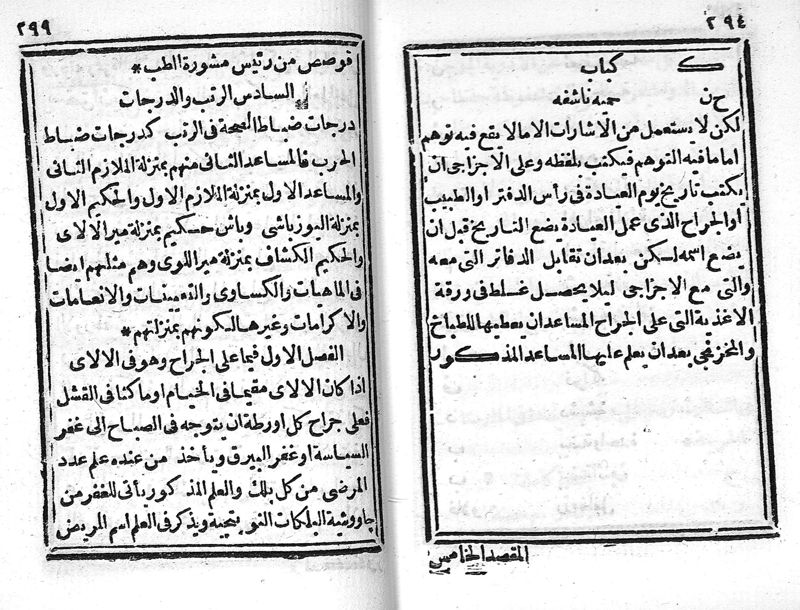 ٢٩٤
ك كباب
ح ن حميه ناشفه
لكن لا يستعمل من الاشارات الا ما لا يقع فيه توهم
اما ما فيه التوهم فيكتب بلفظه وعلى الاجزاجى ان
يكتب تاريخ يوم العيادة فى رأس الدفتر او الطبيب
او الجراح الذى عمل العيادة يضع التاريخ قبل ان
يضع اسمه لكن بعد ان تقابل الدفاتر التى معه
والتى مع الاجزاجى ليلا يحصل غلط فى ورقة
الاغذية التى على الجراح المساعد ان يعطيها للطباخ
والمخزنجى بعد ان يعلم عليها المساعد المذكور
المقصد الخامس
٢٩٩
فوصص من رئيس مشورة الطب*
السادس الرتب والدرجات
درجات ضباط الصحة فى الرتب كدرجات ضباط
الحرب فالمساعد الثانى منهم بمنزلة الملازم الثانى
والمساعد الاول بمنزلة الملازم الاول والحكيم الاول
بمنزلة اليوزباشى وباش حكيم بمنزلة مير الالاى
والحكيم الكشاف بمنزلة مير اللوى وهم مثلهم ايضا
فى الماهيات والكساوى والتعيينات والانعامات
والاكرامات وغيرها لكونهم بمنزلتهم*
الفصل الاول فيما على الجراح وهو فى الالاى
اذا كان الالاى مقيما فى الخيام او ماكثا فى القشل
فعلى جراح كل اورطة ان يتوجه فى الصباح الى غفر
السياسة او غفر البيرق ويأخذ من عنده علم عدد
المرضى من كل بلك والعلم المذكور يأتى للغفر من
جاووشية البلكات النوبتجية ويذكر فى العلم اسم المريض